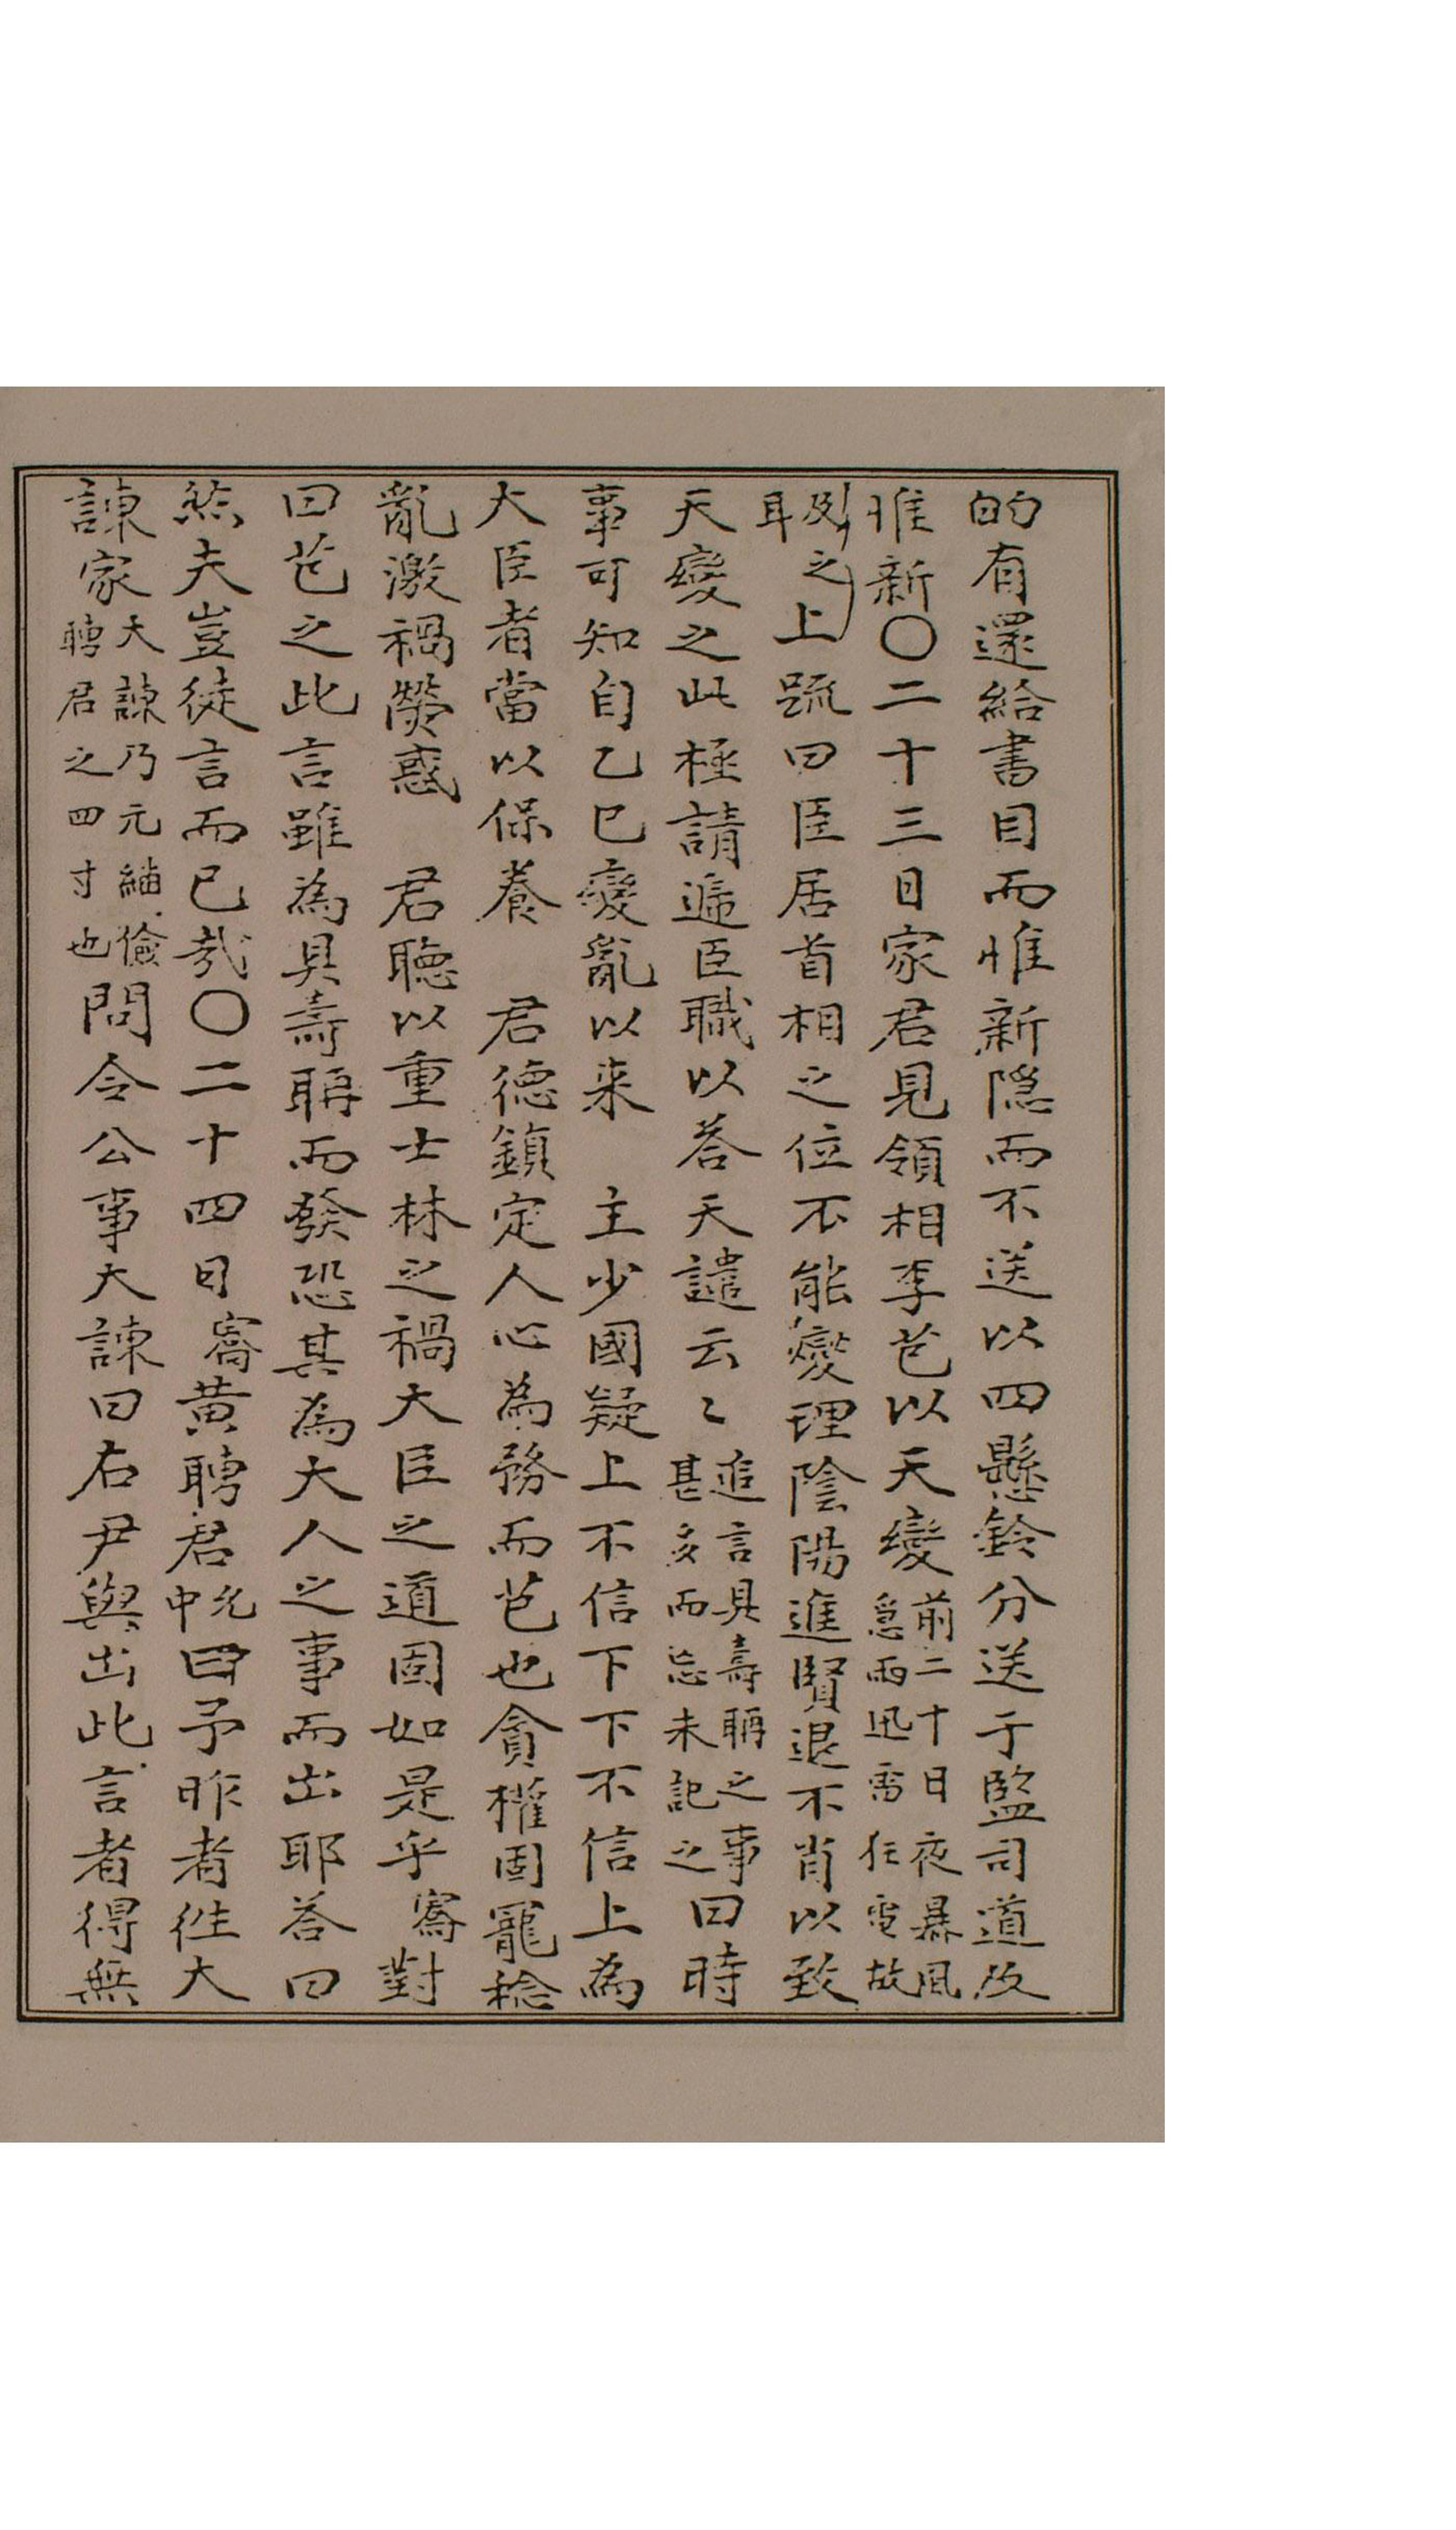 的有還給書目而惟新隱而不送以四懸鈴分送于監司道及
惟新〇二十三日家君見領相李芑以天變前二十日夜暴風急雨迅雷狂電故
及之耳上疏曰臣居首相之位不能燮理陰陽進賢退不肖以致
天變之此極請遞臣職以答天譴云〻追言具壽聃之事甚多而忘未記之曰時
事可知自乙巳變亂以来　主少國疑上不信下下不信上為
大臣者當以保養　君德鎮定人心為務而芑也貪權固寵稔
亂激禍熒惑　君聽以重士林之禍大臣之道固如是乎寯對
曰芑之此言雖為具壽聃而發恐其為大人之事而出耶答曰
然夫豈徒言而已哉〇二十四日寯黄聘君允中曰予昨者徃大
諫家大諫乃元緬儉聘君之四寸也問令公事大諫曰右尹與出此言者得無